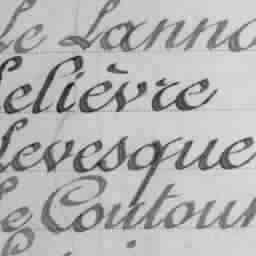 Le Lanno
Lelièvre
Levesque
Le Coutour